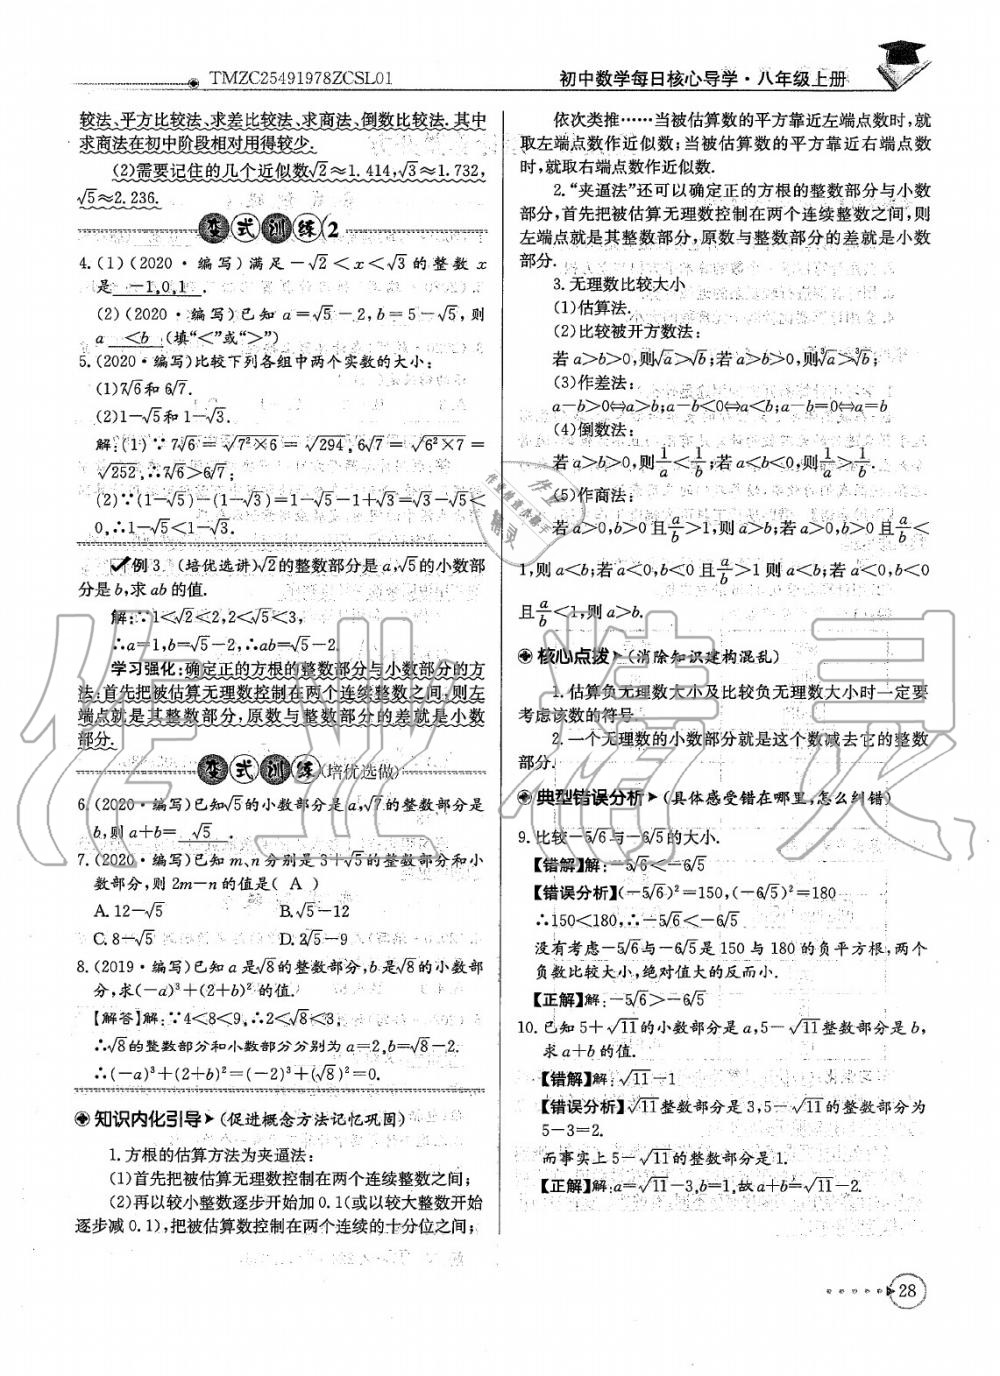 TMZC25491978ZCSL01
初中数学每日核心导学·八年级上册
较法、平方比较法、求差比较法、求商法、倒数比较法.其中
求商法在初中阶段相对用得较少.
(2)需要记住的几个近似数√2≈1.414,√3≈1.732,
√5≈2.236.
变式训练2
4.(1)(2020·编写)满足-√2<x<√3的整数x
是 -1,0,1 .
(2)(2020·编写)已知a=√5-2,b=5-√5,则
a <b (填“<”或“>”)
5.(2020·编写)比较下列各组中两个实数的大小:
(1)7√6和6√7.
(2)1-√5和1-√3.
解:(1)∵7√6=√7²×6=√294,6√7=√6²×7=
√252,∴7√6>6√7;
(2)∵(1-√5)-(1-√3)=1-√5-1+√3=√3-√5<
0,∴1-√5<1-√3.
例3 (培优选讲)√2的整数部分是a,√5的小数部
分是b,求ab的值.
解:∵1<√2<2,2<√5<3,
∴a=1,b=√5-2,∴ab=√5-2.
学习强化:确定正的方根的整数部分与小数部分的方
法:首先把被估算无理数控制在两个连续整数之间,则左
端点就是其整数部分,原数与整数部分的差就是小数
部分.
变式训练(培优选做)
6.(2020·编写)已知√5的小数部分是a,√7的整数部分是
b,则a+b= √5 .
7.(2020·编写)已知m、n分别是3+√5的整数部分和小
数部分,则2m-n的值是( A )
A.12-√5 B.√5-12
C.8-√5 D.2√5-9
8.(2019·编写)已知a是√8的整数部分,b是√8的小数部
分,求(-a)³+(2+b)²的值.
【解答】解:∵4<8<9,∴2<√8<3,
∴√8的整数部分和小数部分分别为a=2,b=√8-2.
∴(-a)³+(2+b)²=(-2)³+(√8)²=0.
知识内化引导(促进概念方法记忆巩固)
1.方根的估算方法为夹逼法:
(1)首先把被估算无理数控制在两个连续整数之间;
(2)再以较小整数逐步开始加0.1(或以较大整数开始
逐步减0.1),把被估算数控制在两个连续的十分位之间;
依次类推……当被估算数的平方靠近左端点数时,就
取左端点数作近似数;当被估算数的平方靠近右端点数
时,就取右端点数作近似数.
2.“夹逼法”还可以确定正的方根的整数部分与小数
部分,首先把被估算无理数控制在两个连续整数之间,则
左端点就是其整数部分,原数与整数部分的差就是小数
部分.
3.无理数比较大小
(1)估算法.
(2)比较被开方数法:
若a>b>0,则√a>√b;若a>b>0,则³√a>³√b;
(3)作差法:
a-b>0⇔a>b;a-b<0⇔a<b;a-b=0⇔a=b
(4)倒数法:
若a>b>0,则1/a<1/b;若a<b<0,则1/a>1/b.
(5)作商法:
若a>0,b>0且a/b>1,则a>b;若a>0,b>0且a/b<
1,则a<b;若a<0,b<0且a/b>1则a<b;若a<0,b<0
且a/b<1,则a>b.
核心点拨(消除知识建构混乱)
1.估算负无理数大小及比较负无理数大小时一定要
考虑该数的符号.
2.一个无理数的小数部分就是这个数减去它的整数
部分.
典型错误分析(具体感受错在哪里,怎么纠错)
9.比较-5√6与-6√5的大小.
【错解】解:-5√6<-6√5
【错误分析】(-5√6)²=150,(-6√5)²=180
∴150<180,∴-5√6<-6√5
没有考虑-5√6与-6√5是150与180的负平方根,两个
负数比较大小,绝对值大的反而小.
【正解】解:-5√6>-6√5
10.已知5+√11的小数部分是a,5-√11整数部分是b,
求a+b的值.
【错解】解:√11-1
【错误分析】√11整数部分是3,5-√11的整数部分为
5-3=2.
而事实上5-√11的整数部分是1.
【正解】解:a=√11-3,b=1,故a+b=√11-2.
28
作业精灵